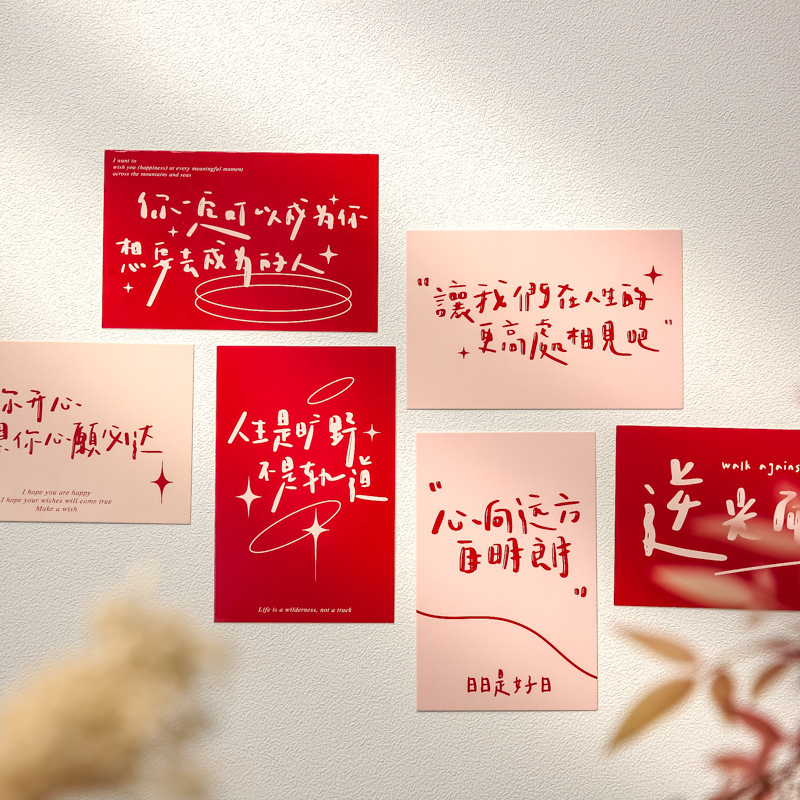 I want to
wish you (happiness) at every meaningful moment
across the mountains and seas
你一定可以成为你
想要去成为的人
“讓我們在人生的
更高處相見吧”
你开心
你心願必达
I hope you are happy
I hope your wishes will come true
Make a wish
人生是旷野
不是轨道
Life is a wilderness, not a track
“心向远方
自明朗”
日日是好日
walk agains
逆光而